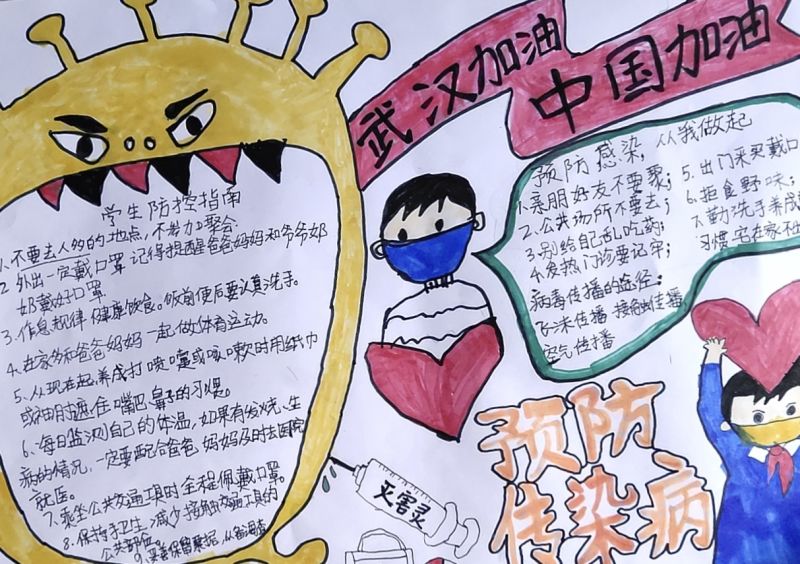 武汉加油
中国加油
学生防控指南
1.不要去人多的的地点,不参加聚会
2 外出一定戴口罩 记得提醒爸爸妈妈和爷爷奶
奶戴好口罩
3.作息规律 健康饮食。饭前便后要认真洗手。
4.在家多和爸爸妈妈一起做体育运动。
5.从现在起养成打喷嚏或咳嗽时用纸巾
或袖肘遮住嘴巴鼻子的习惯。
6、每日监测自己的体温,如果有发烧、生
病的情况,一定要配合爸爸妈妈及时去医院
就医。
7.乘坐公共交通工具时全程佩戴口罩。
8.保持手卫生,减少接触交通工具的
公共部位。
9.妥善保留票据,以备调查
预防感染,从我做起
1.亲朋好友不要聚;
2.公共场所不要去;
3.别给自己乱吃药;
4.发热门诊要记牢;
病毒传播的途径:
飞沫传播 接触传播
空气传播
5.出门采买戴口
6.拒食野味;
7.勤洗手养成
习惯
灭害灵
预防
传染病